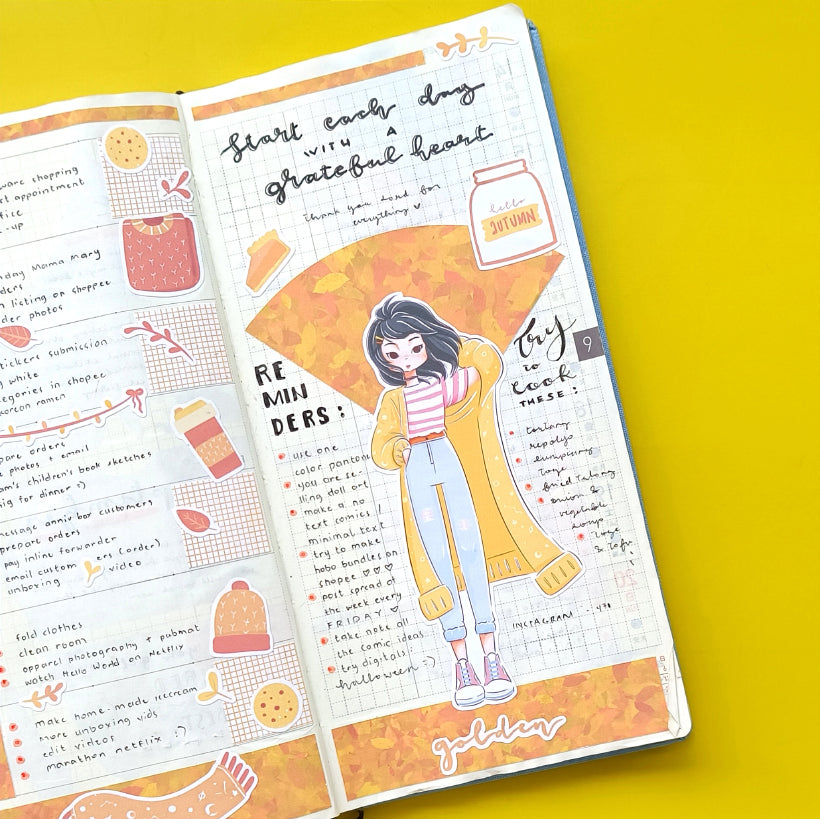 ware shopping
appointment
- up
nday Mama mary
ders
listing or shopee
der photos
stickers submission
g white
tegories in shopee
ramen
pare orders
photos + email
am's children's book sketches
nig for dinner :)
message anniv box customers
prepare orders
pay inline forwarder
email custom ers (order)
unboxing video
fold clothes
clean room
apparel photography + pubmat
watch Hello World on Netflix
make home-made icecream
more unboxing vids
edit videos
marathon netflix :)
Start each day
WITH A
grateful heart
thank you Lord for
everything
hello
AUTUMN
RE
MIN
DERS:
use one
color pantone
you are se-
lling doll art
make a no
text comics /
minimal text
try to make
hobo bundles on
shopee ♡♡♡
post spread of
the week every
FRIDAY ♡
take note all
the comic ideas
try digitals
halloween :)
try
to
cook
THESE:
9
tortang
repolyo
lumpiang
toge
fried talong
onion &
vegetable
soup
toge
& tofu
INSTAGRAM
golden